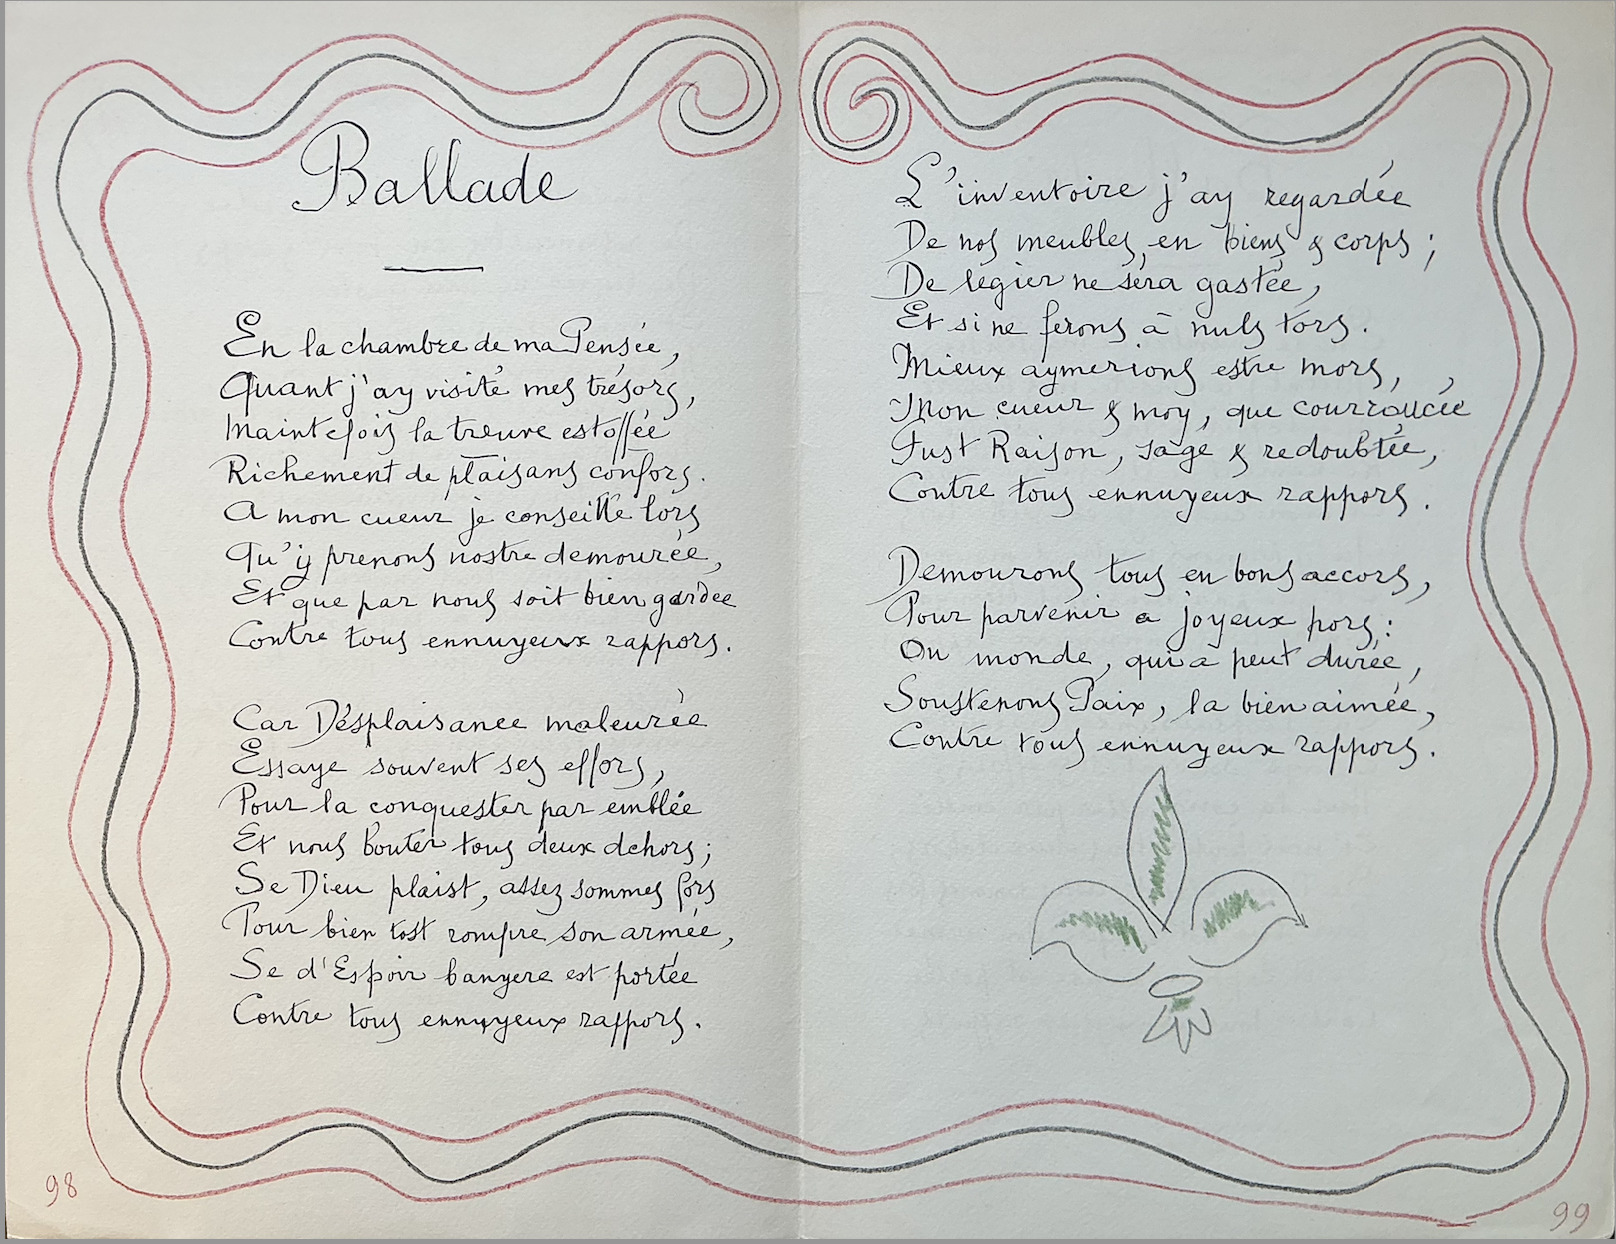 Ballade
En la chambre de ma Pensée,
Quant j'ay visité mes trésors,
Maintefois la treuve estoffée
Richement de plaisans confors.
A mon cueur je conseille lors
Qu'i prenons nostre demourée,
Et que par nous soit bien gardee
Contre tous ennuyeux rappors.
Car Désplaisance maleurée
Essaye souvent ses effors,
Pour la conquester par emblée
Et nous bouter tous deux dehors;
Se Dieu plaist, assez sommes fors
Pour bien tost rompre son armée,
Se d'Espoir banyere est portée
Contre tous ennuyeux rappors.
98
L'inventoire j'ay regardée
De nos meubles, en biens & corps;
De legier ne sera gastée,
Et si ne ferons à nuls tors.
Mieux aymerions estre mors,
Mon cueur & moy, que courroucée
Fust Raison, sage & redoubtée,
Contre tous ennuyeux rappors.
Demourons tous en bons accors,
Pour parvenir a joyeux pors:
Ou monde, qui a peut durée,
Soustenons Paix, la bien aimée,
Contre tous ennuyeux rappors.
99